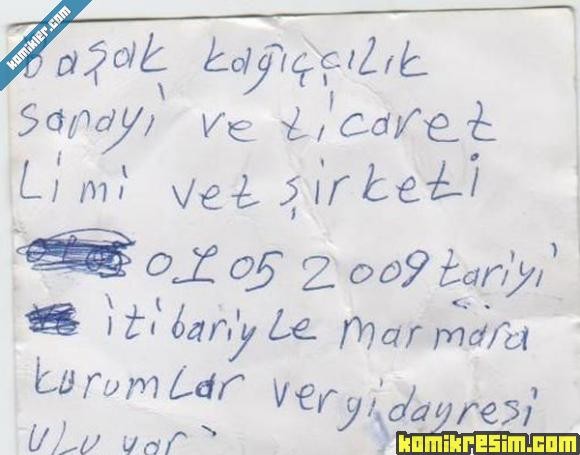 komikler.com
başak kağıççılık
sanayi ve ticaret
Limi vet şirketi
01 05 2009 tariyi
itibariyle marmara
kurumlar vergi dayresi
komikresim.com